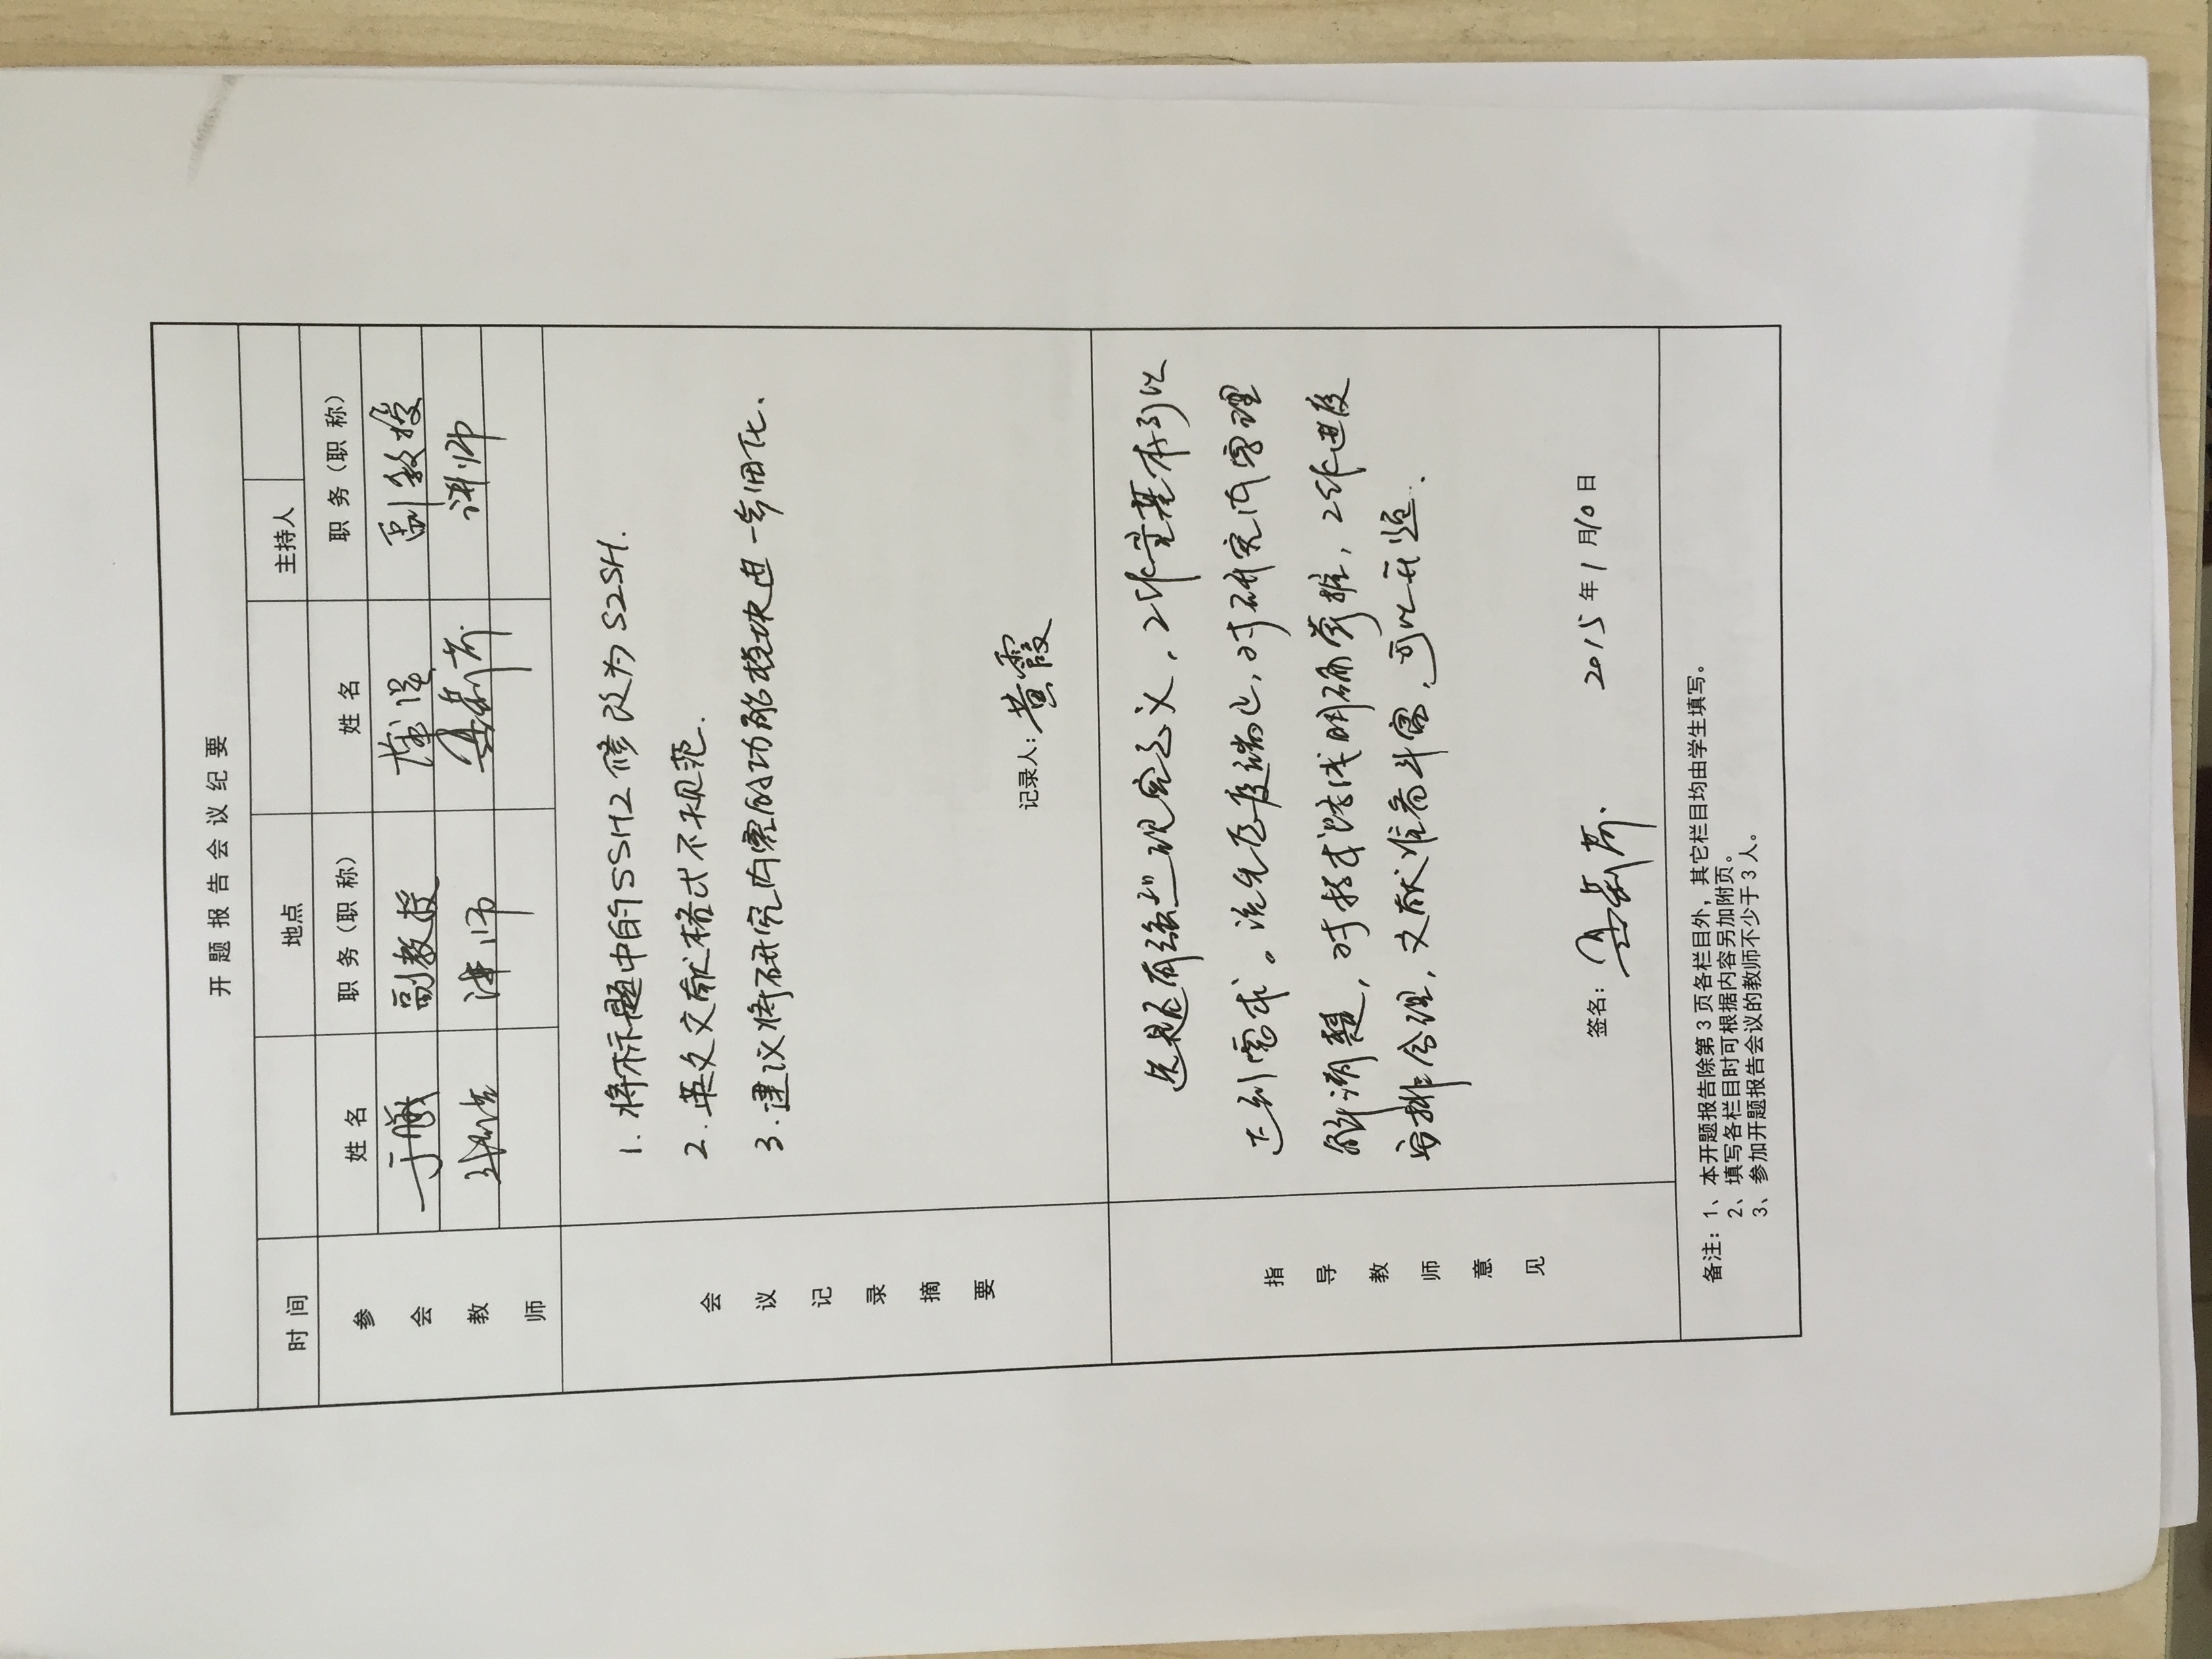 开题报告会议纪要
时间 地点 主持人
参会教师
姓名 职务（职称） 姓名 职务（职称）
于 副教授 副教授
讲师 讲师
会议记录摘要
1. 将标题中的SSH2修改为S2SH.
2. 英文文献格式不规范.
3. 建议将研究内容的功能模块进一步细化.
记录人：黄霞
指导教师意见
选题有强烈现实意义，工作量基本可以
达到需求。该生态度端正，对研究内容理
解清楚，对技术路线明确掌握，工作进度
安排合理，文献准备丰富，可以开题.
签名： 2015年1月10日
备注：1、本开题报告除第3页各栏目外，其它栏目均由学生填写。
2、填写各栏目时可根据内容另加附页。
3、参加开题报告会议的教师不少于3人。